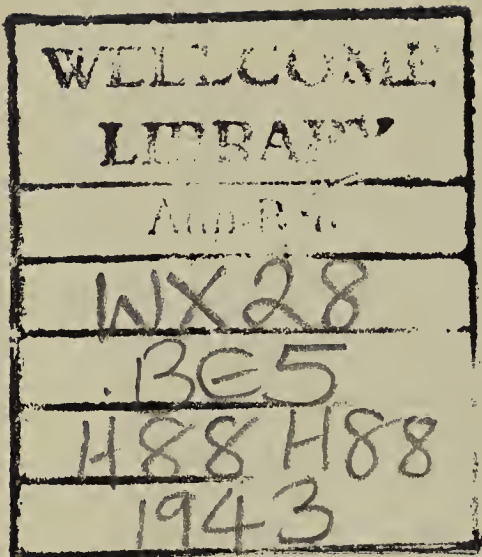 WELLCOME
LIBRARY
Ann. Rep.
WX28
.BE5
H88 H88
1943